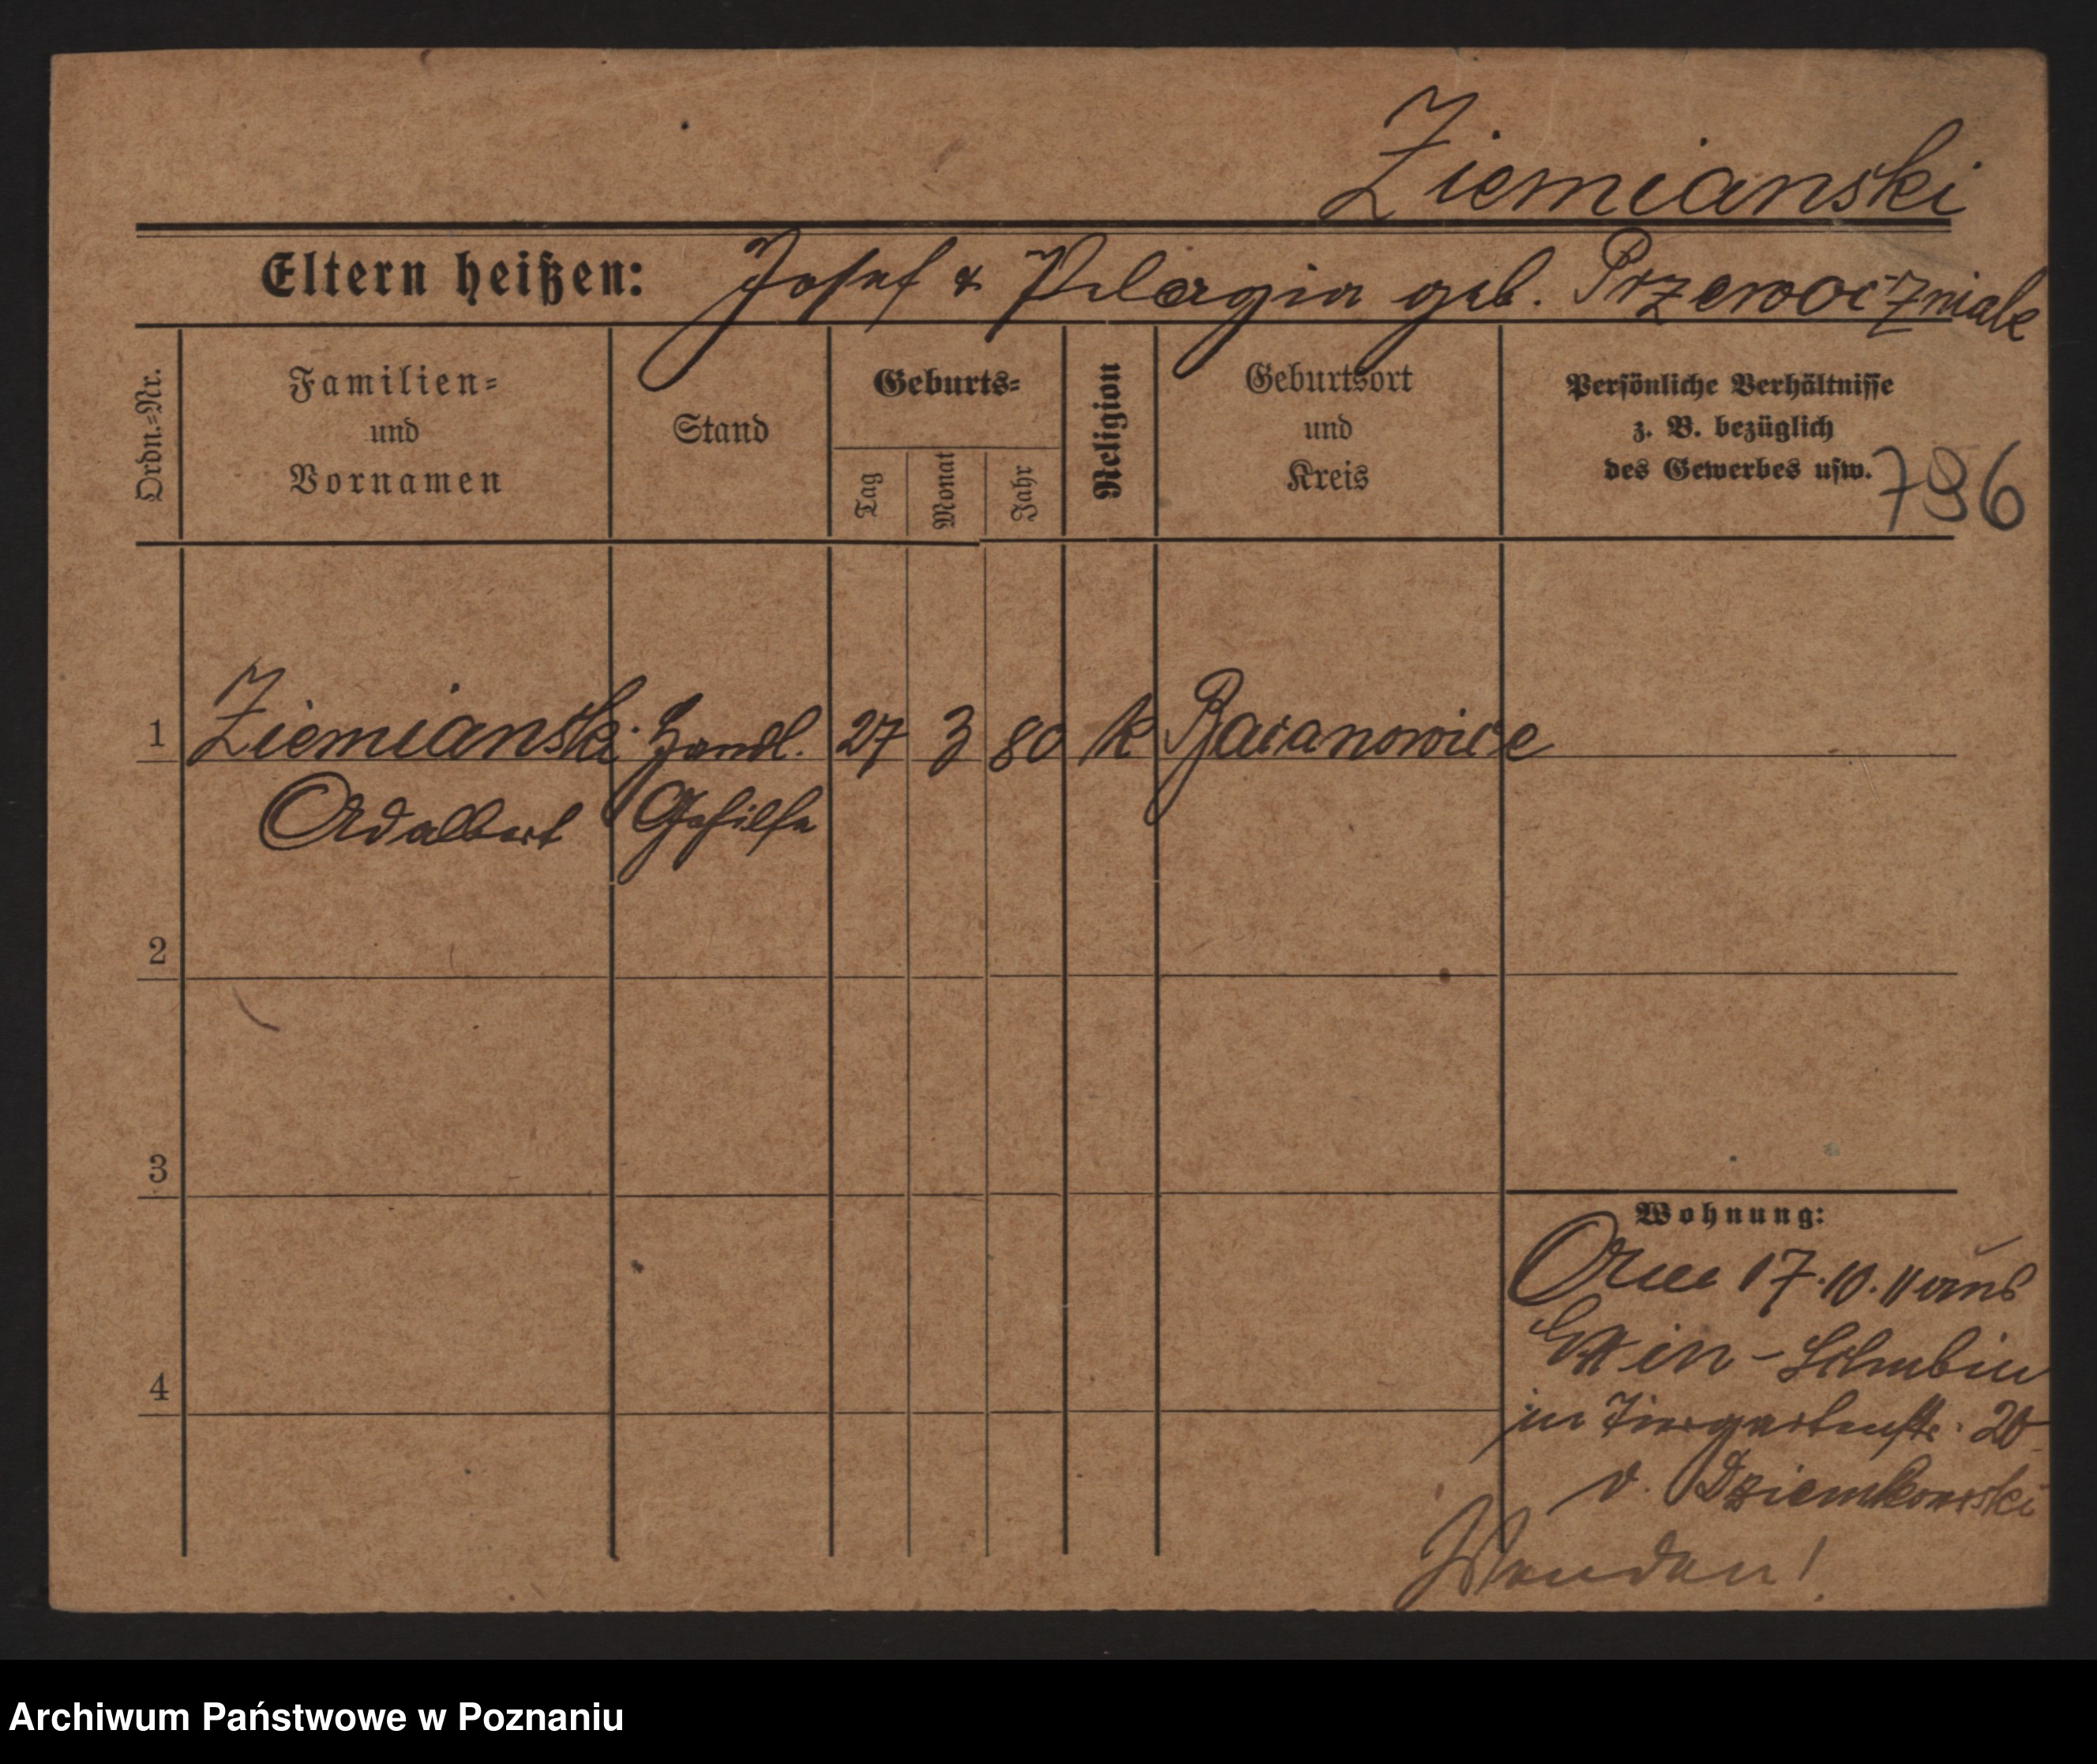 Ziemianski
Eltern heißen: Josef & Pelagia geb. Przewoczniak
Ordn.=Nr.
Familien=
und
Vornamen
Stand
Geburts=
Tag
Monat
Jahr
Religion
Geburtsort
und
Kreis
Persönliche Verhältnisse
z. B. bezüglich
des Gewerbes usw.
796
1 Ziemianski Handl. 27 3 80 k Baranowice
Adalbert Gehilfe
2
3
4
Wohnung:
17.10.11 aus
Exin - Schubin
in Tiergartenstr. 20
v. Dziemkowski
Wenden!
Archiwum Państwowe w Poznaniu